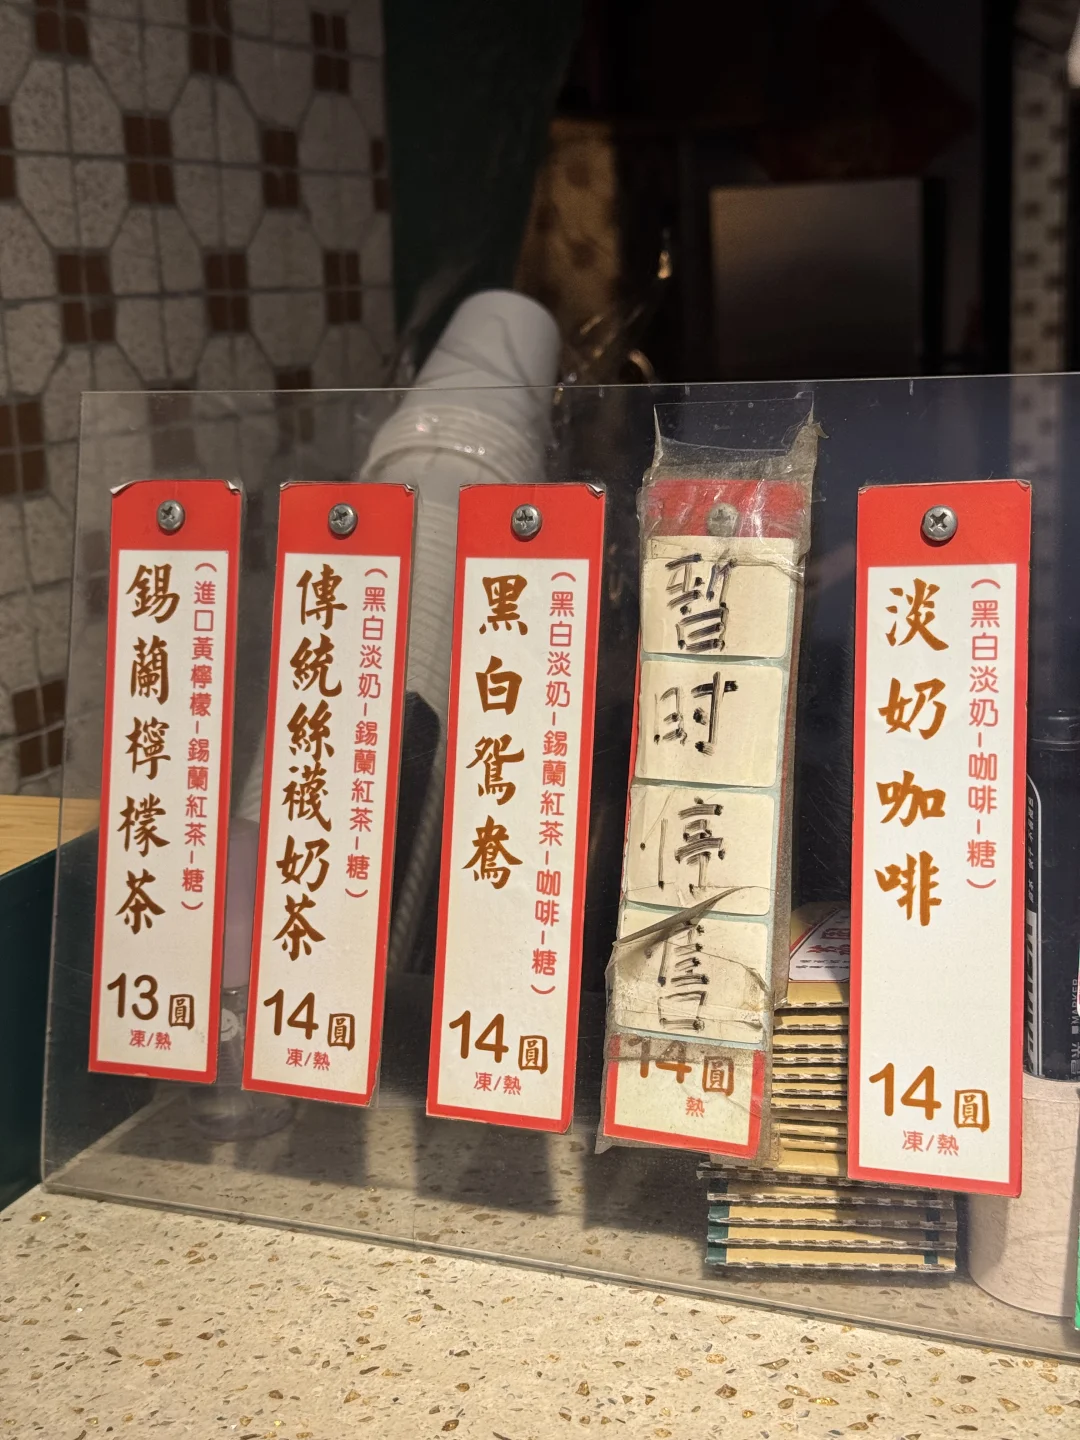 錫蘭檸檬茶
（進口黃檸檬-錫蘭紅茶-糖）
13圓
凍/熱
傳統絲襪奶茶
（黑白淡奶-錫蘭紅茶-糖）
14圓
凍/熱
黑白鴛鴦
（黑白淡奶-錫蘭紅茶-咖啡-糖）
14圓
凍/熱
暫时停售
14圓
熱
淡奶咖啡
（黑白淡奶-咖啡-糖）
14圓
凍/熱
MARKER